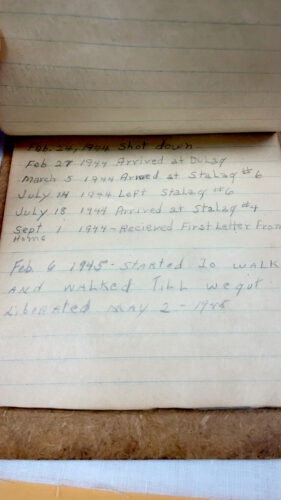 Feb. 24, 1944 Shot down
Feb 27 1944 Arrived at Dulag
March 5 1944 Arrived at Stalag #6
July 14 1944 Left Stalag #6
July 18 1944 Arrived at Stalag #4
Sept 1 1944 - Recieved First Letter From
Home
Feb. 6 1945 - Started To walk
And walked Till we got
Liberated May 2 - 1945